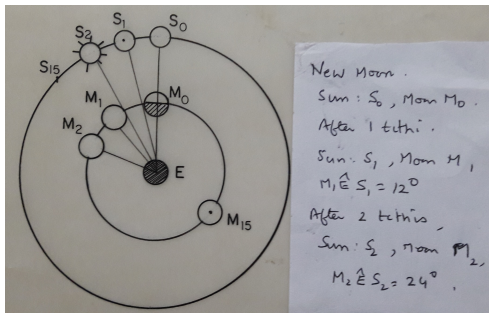 S₂
S₁
S₀
S₁₅
M₀
M₁
M₂
E
M₁₅
New Moon.
Sun: S₀, Moon M₀.
After 1 tithi.
Sun: S₁, Moon M₁
M₁ÊS₁ = 12°
After 2 tithis,
Sun: S₂, Moon M₂,
M₂ÊS₂ = 24°.